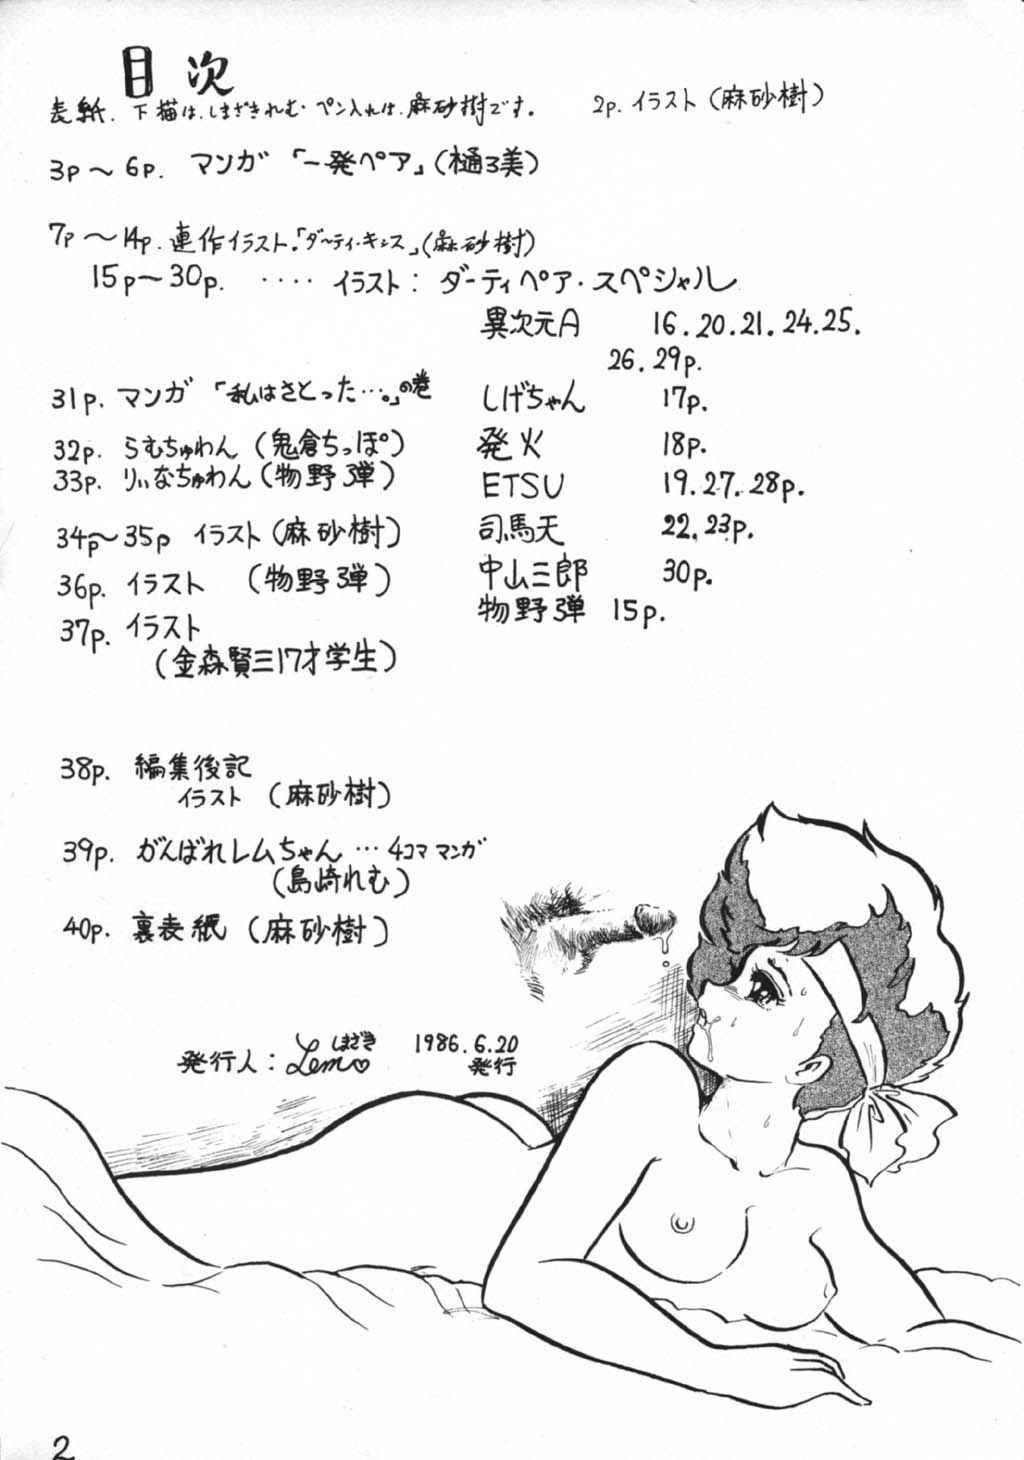 目次
表紙. 下描は、しまざきれむ・ペン入れは、麻砂樹です。 2p. イラスト(麻砂樹)
3p～6p. マンガ「一発ペア」(樋ろ美)
7p～14p. 連作イラスト.「ダーティ・キッス」(麻砂樹)
15p～30p. ････ イラスト: ダーティペア・スペシャル
異次元A 16.20.21.24.25.
26.29p.
31p. マンガ 「私はさとった…。」の巻
しげちゃん 17p.
32p. らむちゅわん (鬼倉ちっぽ)
発火 18p.
33p. りぃなちゅわん (物野弾)
ETSU 19.27.28p.
34p～35p イラスト(麻砂樹)
司馬天 22.23p.
36p. イラスト (物野弾)
中山三郎 30p.
37p. イラスト
物野弾 15p.
(金森賢三17才学生)
38p. 編集後記
イラスト (麻砂樹)
39p. がんばれレムちゃん … 4コママンガ
(島崎れむ)
40p. 裏表紙 (麻砂樹)
発行人: しまざき Lem♡ 1986.6.20
発行
2